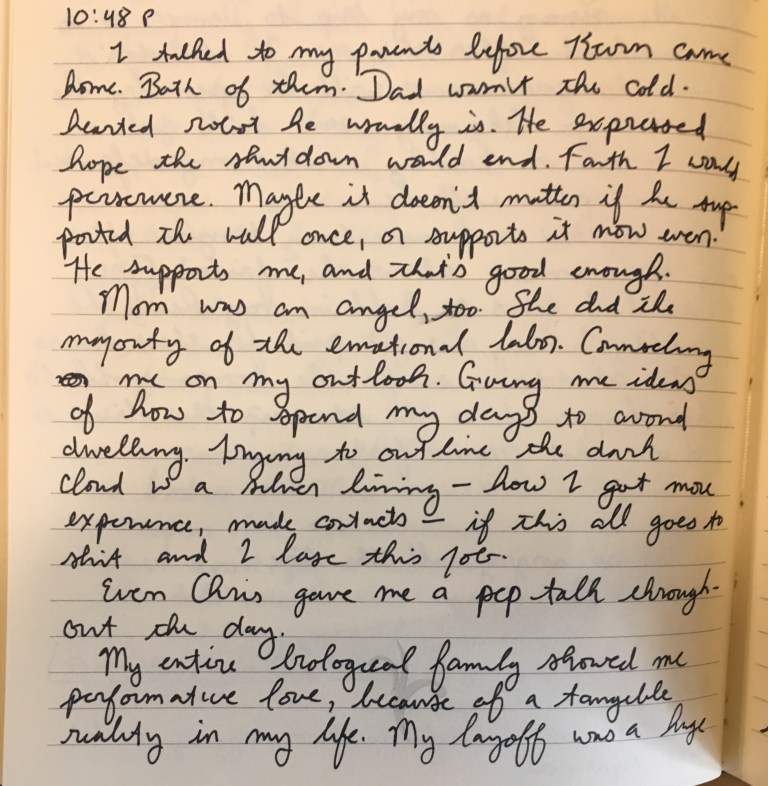 10:48 P
I talked to my parents before Kevin came
home. Both of them. Dad wasn't the cold-
hearted robot he usually is. He expressed
hope the shutdown would end. Faith I would
perservere. Maybe it doesn't matter if he sup-
ported the wall once, or supports it now even.
He supports me, and that's good enough.
Mom was an angel, too. She did the
majority of the emotional labor. Counseling
me on my outlook. Giving me ideas
of how to spend my days to avoid
dwelling. Trying to outline the dark
cloud w a silver lining – how I got more
experience, made contacts – if this all goes to
shit and I lose this job.
Even Chris gave me a pep talk through-
out the day.
My entire biological family showed me
performative love, because of a tangible
reality in my life. My layoff was a huge